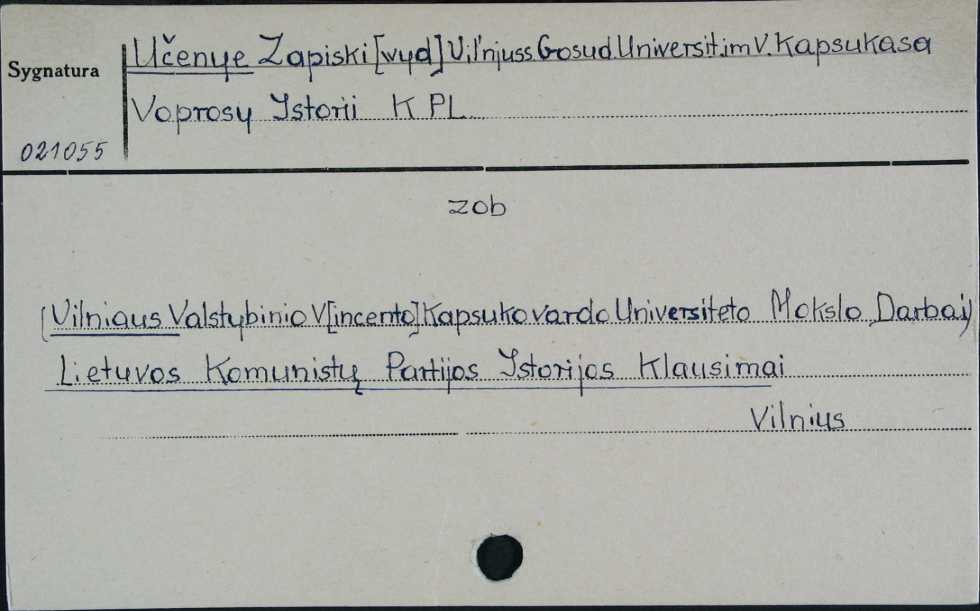 Sygnatura
Učenye Zapiski [wyd] Vil'njuss. Gosud. Universit. im V. Kapsukasa
Voprosy Istorii K PL
021055
zob
(Vilniaus Valstybinio V[incento] Kapsuko vardo Universiteto Mokslo Darbai)
Lietuvos Komunistų Partijos Istorijos Klausimai
Vilnius